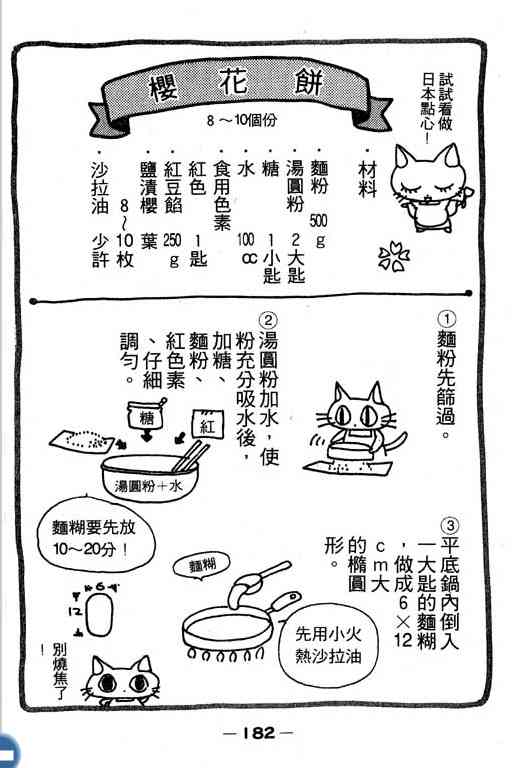 櫻花餅
8～10個份
試試看做
日本點心！
・材料
・麵粉 500g
・湯圓粉 2大匙
・糖 1小匙
・水 100cc
・食用色素
紅色 1匙
・紅豆餡 250g
・鹽漬櫻葉
8～10枚
・沙拉油 少許
①麵粉先篩過。
②湯圓粉加水，使
粉充分吸水後，
加糖、
麵粉、
紅色素
、仔細
調勻。
糖
紅
湯圓粉＋水
麵糊要先放
10～20分！
③平底鍋內倒入
一大匙的麵糊
，做成6×12
cm大
的橢圓
形。
麵糊
先用小火
熱沙拉油
6
12
別燒焦了
！
－182－